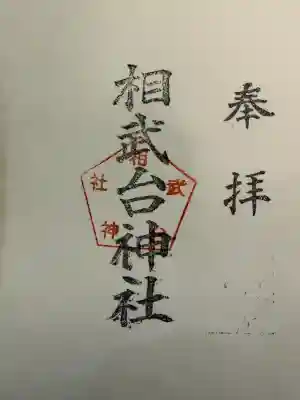 奉拝
相武台神社
相武神社